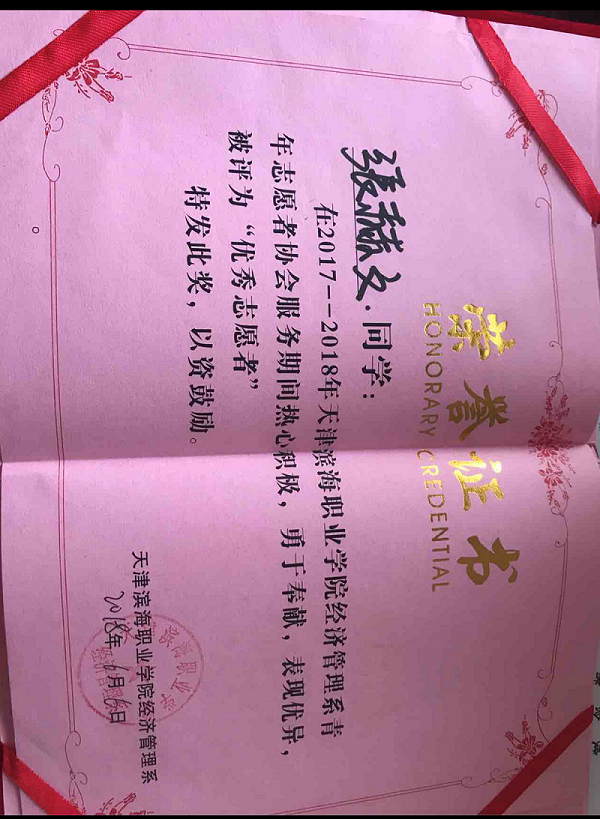 荣誉证书
HONORARY CREDENTIAL
张赫文·同学：
在2017--2018年天津滨海职业学院经济管理系青
年志愿者协会服务期间热心积极，勇于奉献，表现优异，
被评为“优秀志愿者”
特发此奖，以资鼓励。
天津滨海职业学院经济管理系
2018年6月6日